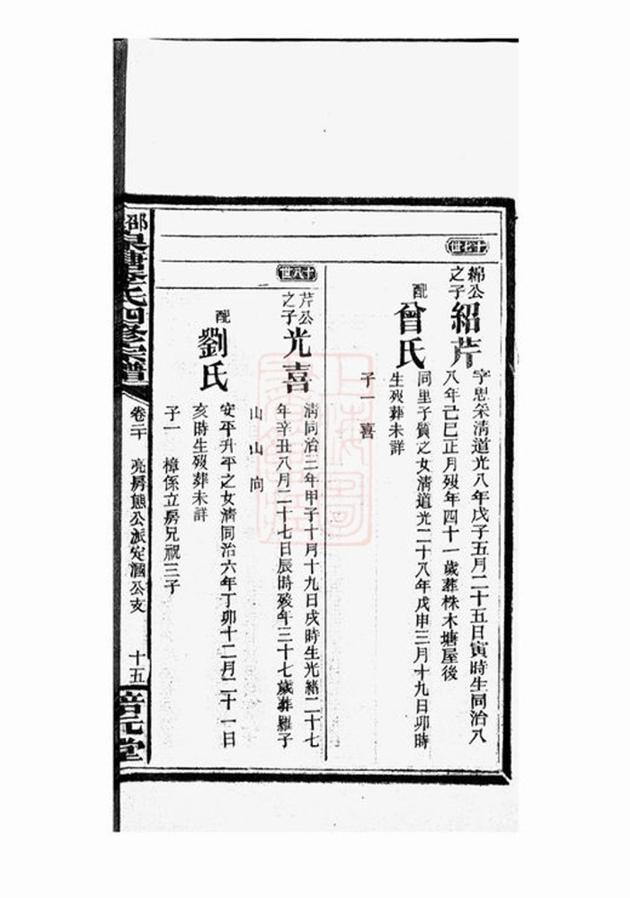 十七世
綿公之子
紹芹
字思采清道光八年戊子五月二十五日寅時生同治八
八年己巳正月歿年四十一歲葬株木塘屋後
配
曾氏
同里子質之女清道光二十八年戊申三月十九日卯時
生歿葬未詳
子一　喜
十八世
芹公之子
光喜
清同治三年甲子十月十九日戌時生光緒二十七
年辛丑八月二十七日辰時歿年三十七歲葬羅子
山山向
配
劉氏
安平升平之女清同治六年丁卯十二月二十一日
亥時生歿葬未詳
子一　樟係立房兄祝三子
氏四修宗譜
卷二十　亮房熊公派定湖公支
十五
元堂